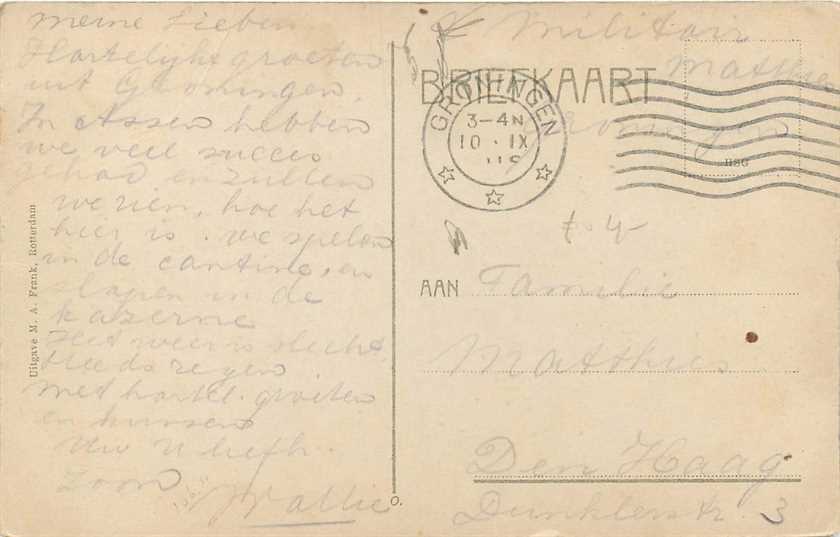 meine Lieben
Hartelijke groeten
uit Groningen.
In Assen hebben
we veel succes
had en zullen
we zien, hoe het
hier is. we spelen
in de cantine, en
slapen in de
kazerne
Het weer is slecht
steeds regen
met hartel. groeten
en kussen
Uw U liefh.
Zoon
Wallie
Uitgave M. A. Frank, Rotterdam
O.
Militair
Matthies
Groningen
BRIEFKAART
GRONINGEN
3-4N
10 . IX
AAN Familie
Matthies
Den Haag
Dunklerstr. 3